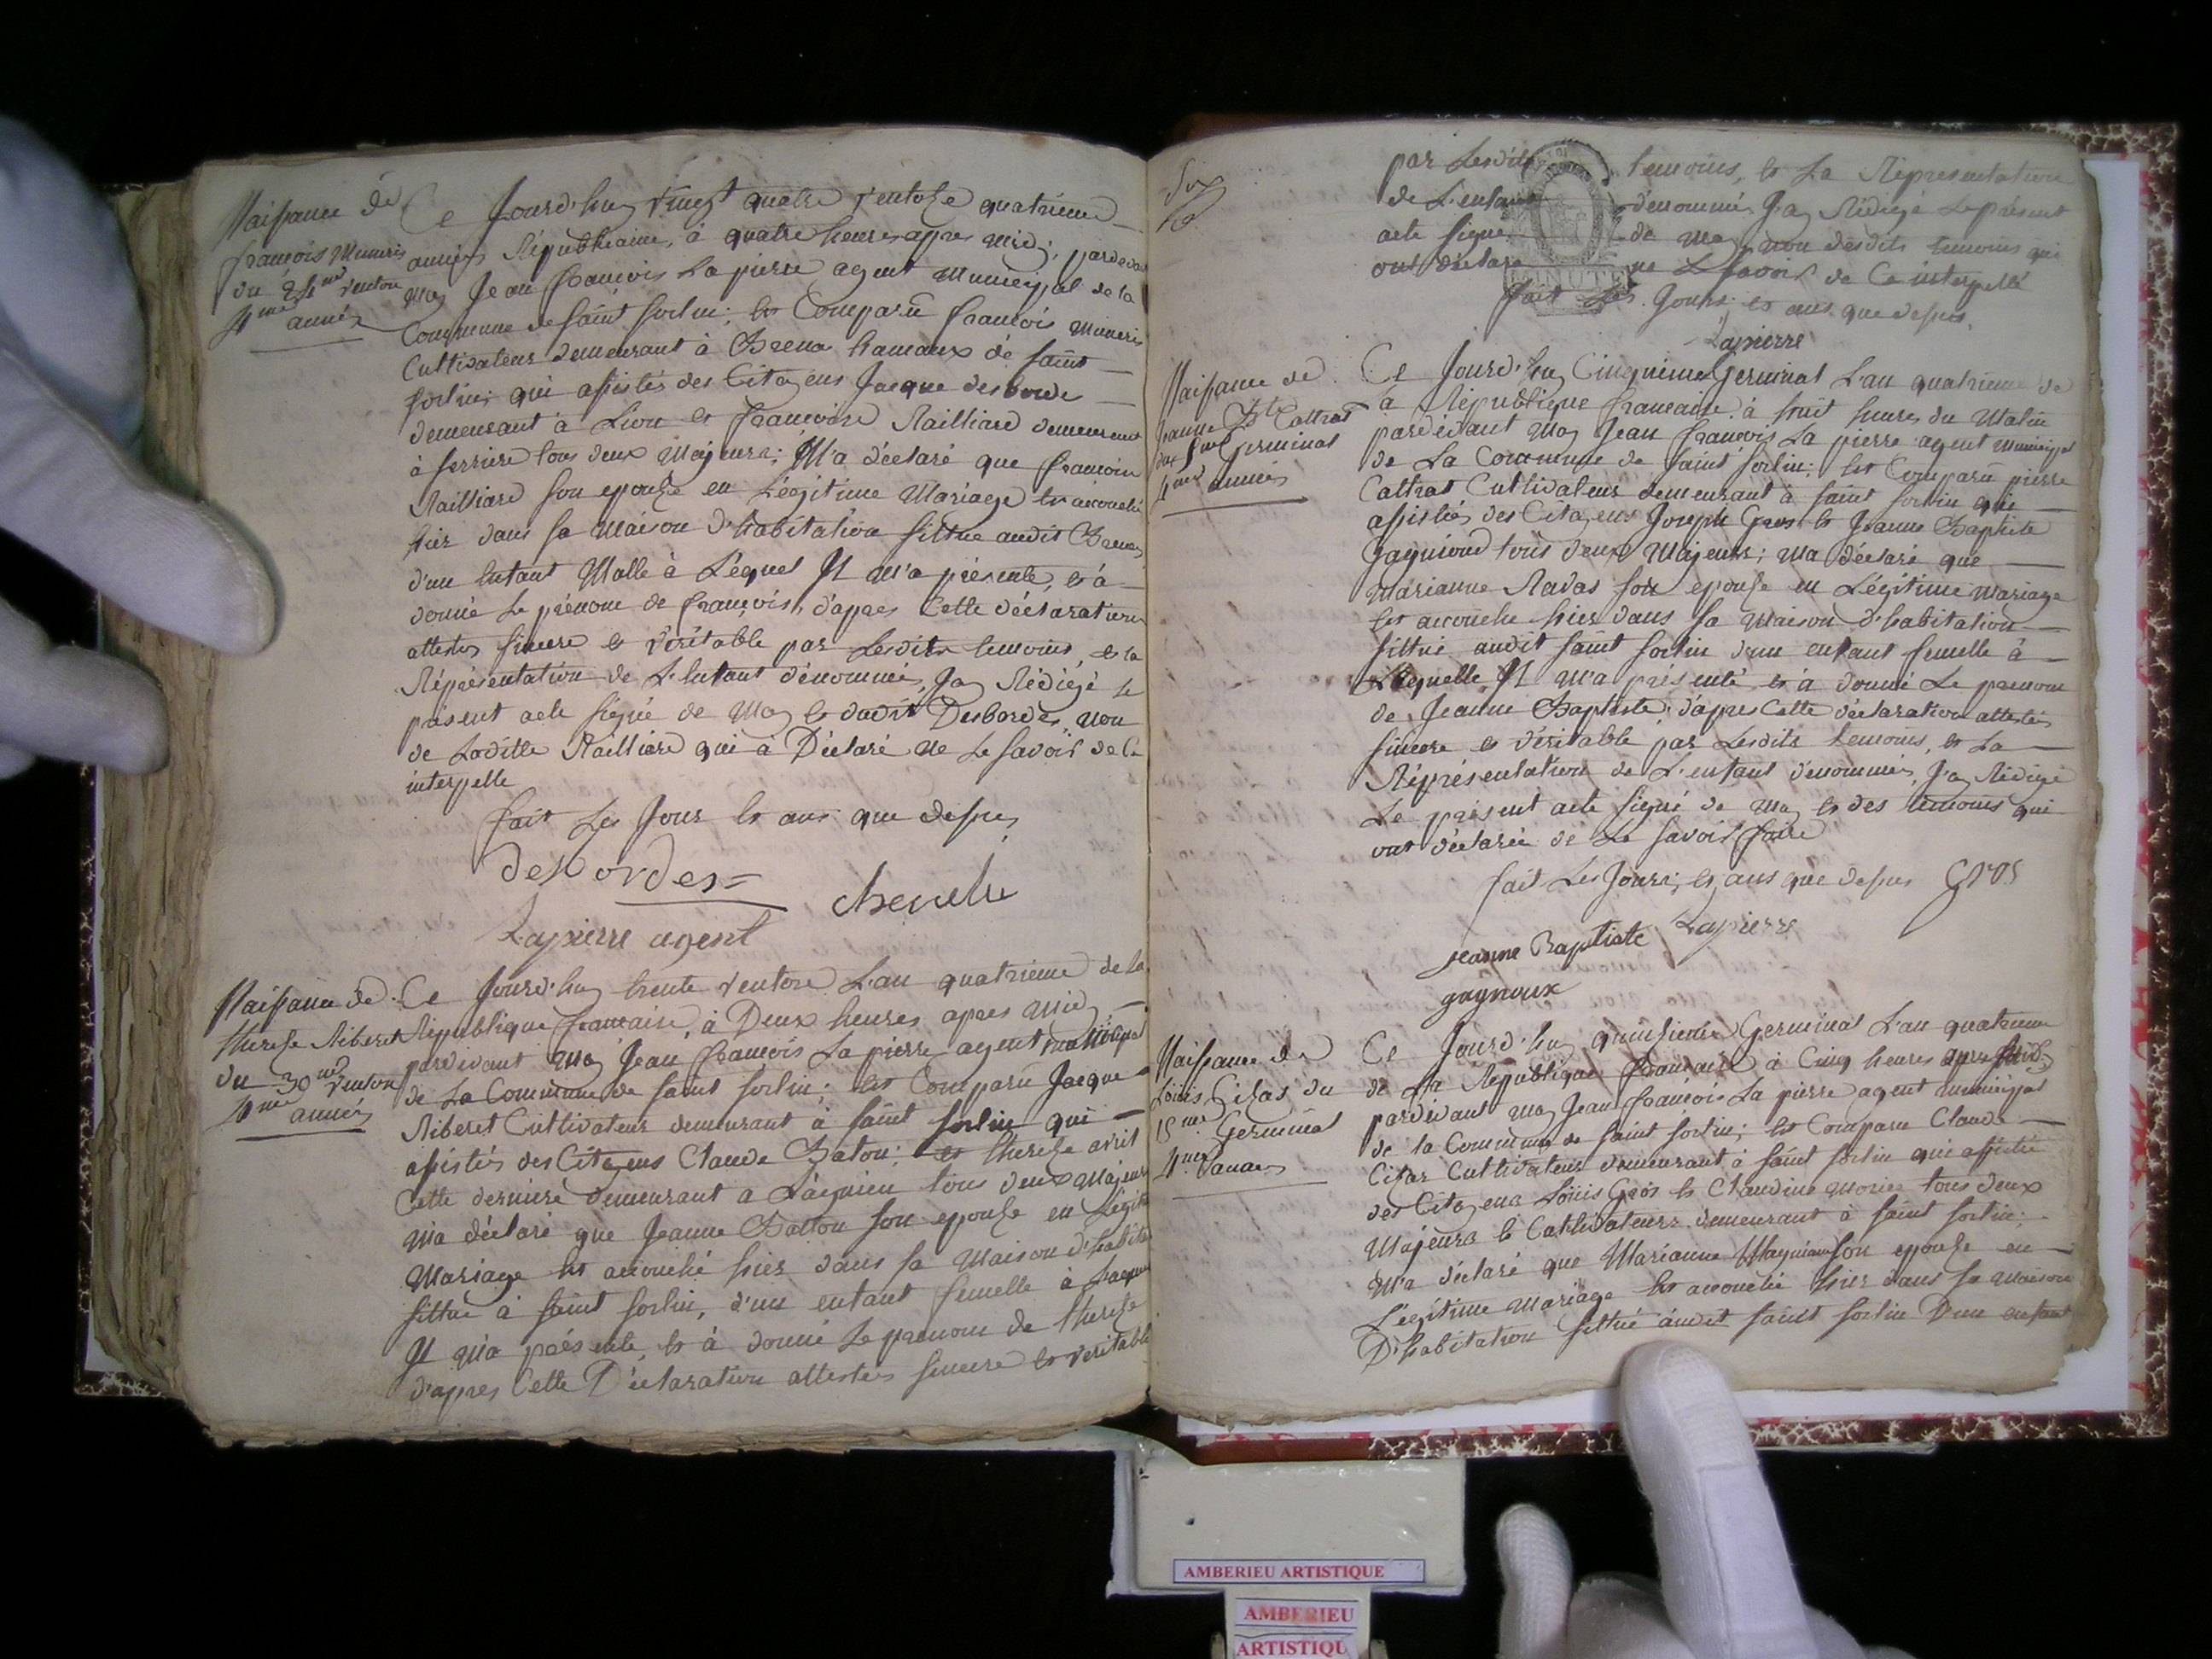 Naissance de
françois Muneris
du 24me Ventose
4me année
Ce Jourd'huy Vingt quatre Ventose quatrieme
année Républicaine, à quatre heures apres midi; pardevant
moy Jean françois Lapierre agent Municipal de la
Commune de saint sorlin; est Comparû françois Muneris
Cultivateur demeurant à Brena hamaux de saint
sorlin; qui assistés des Citoyens Jacque desborde
demeurant à Lion et françoise Railliard demeurant
à serriere tous deux Majeurs; M'a déclaré que francoise
Railliard son epouse en Légitime Mariage est accouché
hier dans sa Maison d'habitation sittue audit Brena
d'un Enfant Malle à Lequel Il m'a présenté, et à
donné Le prénom de françois, d'apres Cette déclaration
attestés sincere et Véritable par Lesdits temoins, et la
Réprésentation de L'Enfant dénommés, Jay Rédiegé le
présent acte signé de Moy et dudit Desbordes, non
de Laditte Railliard qui à Déclaré ne Le savoir de Ce
interpelle
fait Les Jour et ans que dessus
desbordes
Lapierre agent
Naissance de
therese Riberet
du 30me Ventose
4me année
Ce Jourd'huy trente Ventose L'an quatrieme de la
République francaise, à Deux heures apres Midy
pardevant Moy Jean francois Lapierre agent municipal
de La Commune de saint sorlin; est Comparû Jacque
Riberet Cultivateur demeurant à saint sorlin qui
assistés des Citoyens Claude Baton; et therese
Cette derniere demeurant a Lagnieu tous deux Majeurs
m'a déclaré que Jeanne Batton son epouse en Légiti
Mariage est accouché hier dans sa Maison d'habita
sittue à saint sorlin, d'un enfant femelle à Laquelle
Il m'a présenté, et à donné Le prenom de therese
d'apres Cette Déclaration attestés sincere et Veritable
par Lesdits temoins, et La Répresentation
de L'enfant dénommé, Jay Rédiegé Le présent
acte signé de Moy non desdits temoins qui
ont déclaré ne Le savoir de Ce interpellé
MINUTE
fait Les Jours; et ans que dessus,
Lapierre
Naissance de
Jeanne Bte Cattrat
4me année
Ce Jourd'huy Cinquieme Germinal L'an quatrieme de
a République francaise, à huit heures du Matin
pardevant Moy Jean francois La pierre agent Municipal
de La Commune de saint sorlin; est Comparû pierre
Cattrat Cultivateur demeurant à saint sorlin qui
assistés des Citoyens Joseph Gros et Jeanne Baptiste
tous deux Majeurs; m'a déclaré que
Marianne Ravas son epouse en Légitime Mariage
est accouché hier dans sa Maison d'habitation
sittué audit saint sorlin d'un enfant femelle à
Laquelle Il m'a présenté et à donné Le prenom
de Jeanne Baptiste; d'apres Cette déclaration attestés
sincere et Véritable par Lesdits temoins, et La
Réprésentation de L'enfant dénommés, J'ay Rédiegé
Le présent acte signé de Moy et des temoins qui
ont déclarée de Le savoir faire
fait Les Jours; et ans que dessus Gros
Lapierre
jeanne Baptiste
gagnoux
Naissance de
Louis Cizas du
15me Germinal
4me année
Ce Jourd'huy quinsieme Germinal L'an quatrieme
de La République francaise à Cinq heures apres midy
pardevant Moy Jean francois La pierre agent municipal
de la Commune de saint sorlin; est Comparu Claude
Cizas Cultivateur demeurant à saint sorlin qui assisté
des Citoyens Loüis Gros et Claudine Morier tous deux
Majeurs et Cultivateurs demeurant à saint sorlin;
m'a déclaré que Marianne son epouse en
Légitime Mariage est accouché hier dans sa Maison
D'habitation sittué audit saint sorlin D'un enfant
AMBERIEU ARTISTIQUE
AMBERIEU
ARTISTIQU